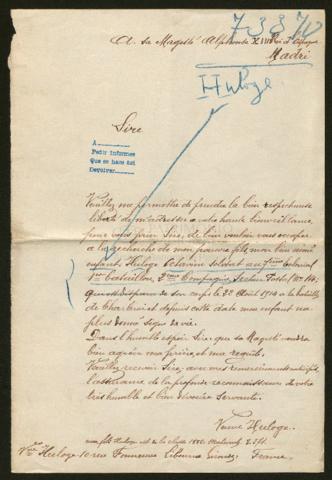 73870
A. Sa Magesté Alphonse XIII Roi d'Espagne
Madri
Huloge
Sire
A
Pedir informes
Que se hace así
Devolver
Veuillez me permettre de prendre la bien respectueuse
liberté de m'adresser a votre haute bienveillance,
pour vous prier Sire, de bien vouloir vous occuper
a la recherche de mon pauvre fils mon bien aimé
enfant. Huloge Octavin soldat au 7ème Colonial
1er Bataillon, 2ème Compagnie, Section
disparu de son corps le 22 Août 1914 a la bataille
de et depuis cette date mon enfant n'a
plus donné signe de vie.
Dans l'humble espoir Sire que Sa Magesté voudra
bien agréer ma prière, et ma requête.
Veuillez recevoir Sire, avec mes remerciements
l'assurance de la profonde reconnaissance de votre
très humble et bien dévouée Servante.
Veuve Huloge.
mon fils Huloge est de la classe
Vve Huloge 10 rue Fonneuve Libourne Gironde, France